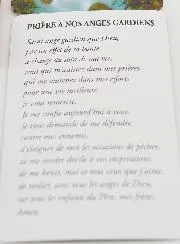 PRIÈRE À NOS ANGES GARDIENS
Saint ange gardien que Dieu,
par un effet de sa bonté
a chargé du soin de ma vie,
vous qui m'assistez dans mes prières,
qui me soutenez dans mes efforts
pour une vie meilleure,
je vous remercie.
Je me confie aujourd'hui à vous.
Je vous demande de me défendre
contre mes ennemis,
d'éloigner de moi les occasions de pécher,
de me rendre docile à vos inspirations,
de me bénir, moi et tous ceux que j'aime,
de veiller, avec tous les anges de Dieu,
sur tous les enfants du Père, mes frères,
Amen.